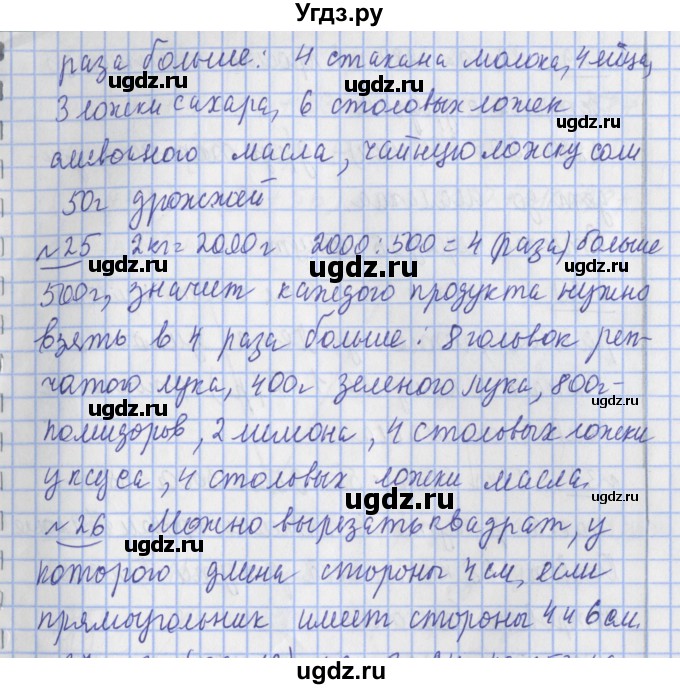 Угдз.ру
раза больше: 4 стакана молока, 4 яйца,
3 ложки сахара, 6 столовых ложек
оливоного масла, чайную ложку соли
50г дрожжей
№25 2кг = 2000г 2000 : 500 = 4 (раза) больше
500г, значит каждого продукта нужно
взять в 4 раза больше: 8 головок реп-
чатого лука, 400г зеленого лука, 800г-
помидоров, 2 лимона, 4 столовых ложки
уксуса, 4 столовых ложки масла.
№26 Можно вырезать квадрат, у
которого длина стороны 4 см, если
прямоугольник имеет стороны 4 и 6 см.
ugdz.ru
ugdz.ru
ugdz.ru
ugdz.ru
ugdz.ru
ugdz.ru
ugdz.ru
ugdz.ru
ugdz.ru
ugdz.ru
ugdz.ru
ugdz.ru
ugdz.ru
ugdz.ru